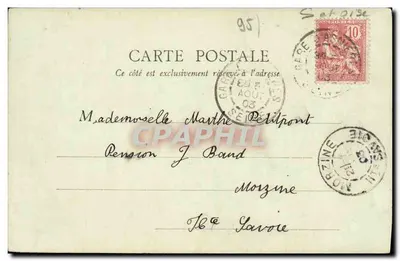 95/
10
CARTE POSTALE
Ce côté est exclusivement réservé à l'adresse
GARE
AOUT
03
CPAPHIL
Mademoiselle Marthe Petitpont
Pension J Baud
Morzine
Hte Savoie
MORZINE